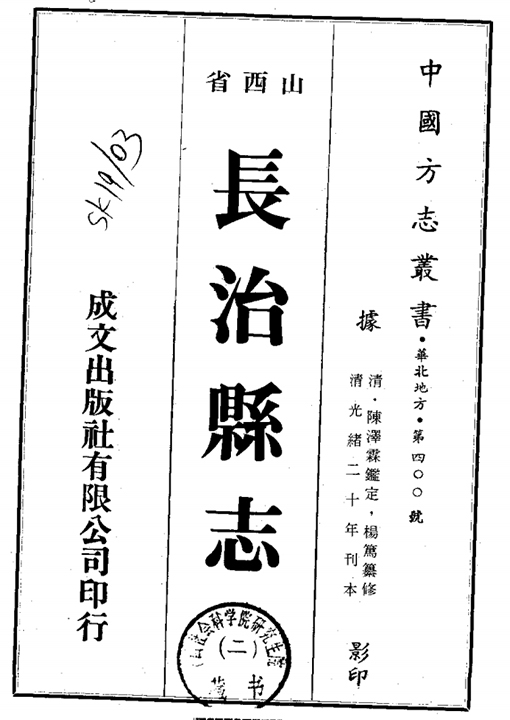 中國方志叢書·華北地方·第四〇〇號
據
清·陳澤霖鑑定，楊篤纂修
清光緒二十年刊本
影印
山西省
長治縣志
成文出版社有限公司印行
SK19/03
社会科学院研究生院
(二)
书